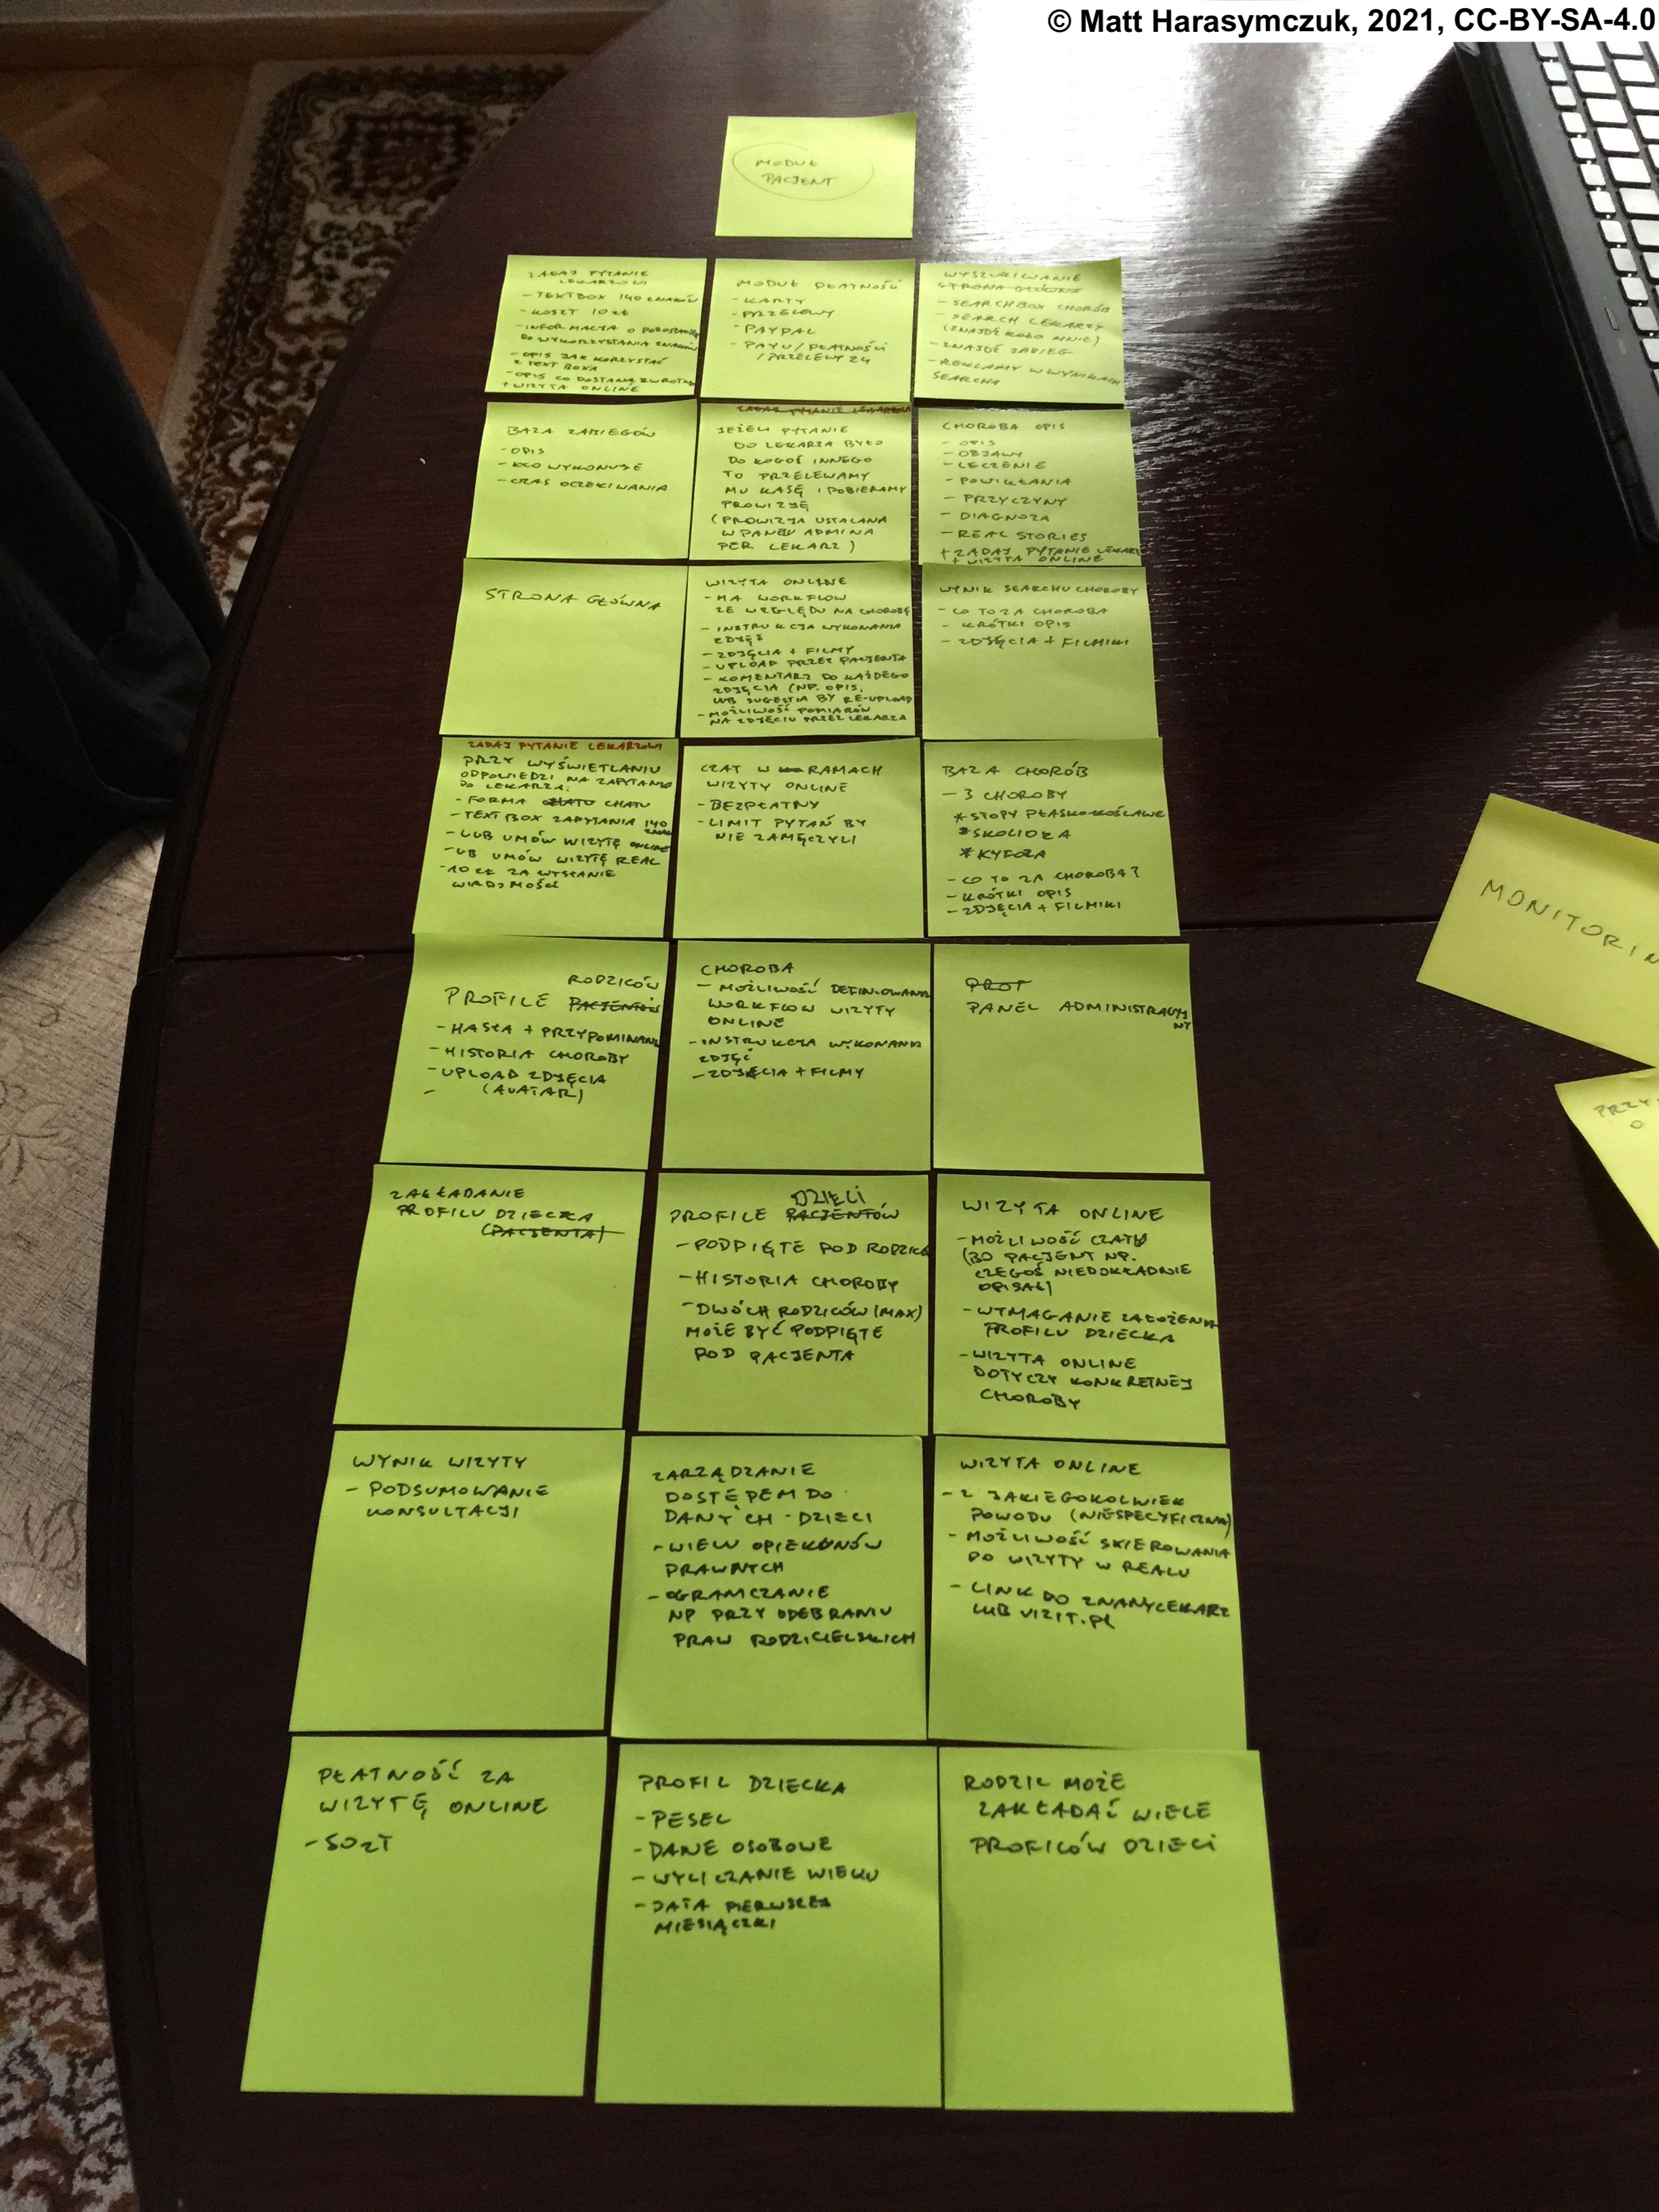 © Matt Harasymczuk, 2021, CC-BY-SA-4.0
MODUŁ
PACJENT
ZADAJ PYTANIE
LEKARZOWI
- TEXTBOX 140 ZNAKÓW
- KOSZT 10 ZŁ
- INFORMACJA O
DO WYKORZYSTANIA ZNAKÓW
- OPIS JAK KORZYSTAĆ
Z TEXT BOXA
- OPIS CO DOSTANĘ ZWROTNIE
+ WIZYTA ONLINE
MODUŁ PŁATNOŚCI
- KARTY
- PRZELEWY
- PAYPAL
- PAYU / PŁATNOŚCI
/ PRZELEWY 24
WYSZUKIWANIE
STRONA GŁÓWNA
- SEARCHBOX CHORÓB
- SEARCH LEKARZY
(ZNAJDŹ KOŁO MNIE)
- ZNAJDŹ ZABIEG
- REKLAMY W WYNIKACH
SEARCHA
BAZA ZABIEGÓW
- OPIS
- KTO WYKONUJE
- CZAS OCZEKIWANIA
ZADAJ PYTANIE LEKARZOWI
JEŻELI PYTANIE
DO LEKARZA BYŁO
DO KOGOŚ INNEGO
TO PRZELEWAMY
MU KASĘ I POBIERAMY
PROWIZJĘ
(PROWIZJA USTALANA
W PANELU ADMINA
PER LEKARZ)
CHOROBA OPIS
- OPIS
- OBJAWY
- LECZENIE
- POWIKŁANIA
- PRZYCZYNY
- DIAGNOZA
- REAL STORIES
+ ZADAJ PYTANIE LEKARZ
+ WIZYTA ONLINE
STRONA GŁÓWNA
WIZYTA ONLINE
- MA WORKFLOW
ZE WZGLĘDU NA CHOROBĘ
- INSTRUKCJA WYKONANIA
ZDJĘĆ
- ZDJĘCIA + FILMY
- UPLOAD PRZEZ PACJENTA
- KOMENTARZ DO KAŻDEGO
ZDJĘCIA (NP. OPIS,
LUB SUGESTIA BY RE-UPLOAD
- MOŻLIWOŚĆ POMIARÓW
NA ZDJĘCIU PRZEZ LEKARZA
WYNIK SEARCHU CHOROBY
- CO TO ZA CHOROBA
- KRÓTKI OPIS
- ZDJĘCIA + FILMIKI
ZADAJ PYTANIE LEKARZOWI
PRZY WYŚWIETLANIU
ODPOWIEDZI NA ZAPYTANIE
DO LEKARZA:
- FORMA CHATU
- TEXT BOX ZAPYTANIA 140
ZNAK
- LUB UMÓW WIZYTĘ ONLINE
- LUB UMÓW WIZYTĘ REAL
- 10 ZŁ ZA WYSŁANIE
WIADOMOŚCI
CZAT W RAMACH
WIZYTY ONLINE
- BEZPŁATNY
- LIMIT PYTAŃ BY
NIE ZAMĘCZYLI
BAZA CHORÓB
- 3 CHOROBY
* STOPY PŁASKO-KOŚLAWE
* SKOLIOZA
* KYFOZA
- CO TO ZA CHOROBA?
- KRÓTKI OPIS
- ZDJĘCIA + FILMIKI
RODZICÓW
PROFILE PACJENTÓW
- HASŁA + PRZYPOMINANIE
- HISTORIA CHOROBY
- UPLOAD ZDJĘCIA
- (AVATAR)
CHOROBA
- MOŻLIWOŚĆ DEFINIOWANIA
WORKFLOW WIZYTY
ONLINE
- INSTRUKCJA WYKONANIA
ZDJĘĆ
- ZDJĘCIA + FILMY
PROT
PANEL ADMINISTRACYJ
NY
MONITORIN
PRZY
O
ZAKŁADANIE
PROFILU DZIECKA
(PACJENTA)
DZIECI
PROFILE PACJENTÓW
- PODPIĘTE POD RODZICA
- HISTORIA CHOROBY
- DWÓCH RODZICÓW (MAX)
MOŻE BYĆ PODPIĘTE
POD PACJENTA
WIZYTA ONLINE
- MOŻLIWOŚĆ CZATU
(BO PACJENT NP.
CZEGOŚ NIEDOKŁADNIE
OPISAŁ)
- WYMAGANIE ZAŁOŻENIA
PROFILU DZIECKA
- WIZYTA ONLINE
DOTYCZY KONKRETNEJ
CHOROBY
WYNIK WIZYTY
- PODSUMOWANIE
KONSULTACJI
ZARZĄDZANIE
DOSTĘPEM DO
DANYCH DZIECI
- WIELU OPIEKUNÓW
PRAWNYCH
- OGRANICZANIE
NP PRZY ODEBRANIU
PRAW RODZICIELSKICH
WIZYTA ONLINE
- Z JAKIEGOKOLWIEK
POWODU (NIESPECYFICZNA)
- MOŻLIWOŚĆ SKIEROWANIA
DO WIZYTY W REALU
- LINK DO ZNANYLEKARZ
LUB VIZIT.PL
PŁATNOŚĆ ZA
WIZYTĘ ONLINE
- 50 ZŁ
PROFIL DZIECKA
- PESEL
- DANE OSOBOWE
- WYLICZANIE WIEKU
- DATA PIERWSZEJ
MIESIĄCZKI
RODZIC MOŻE
ZAKŁADAĆ WIELE
PROFILÓW DZIECI